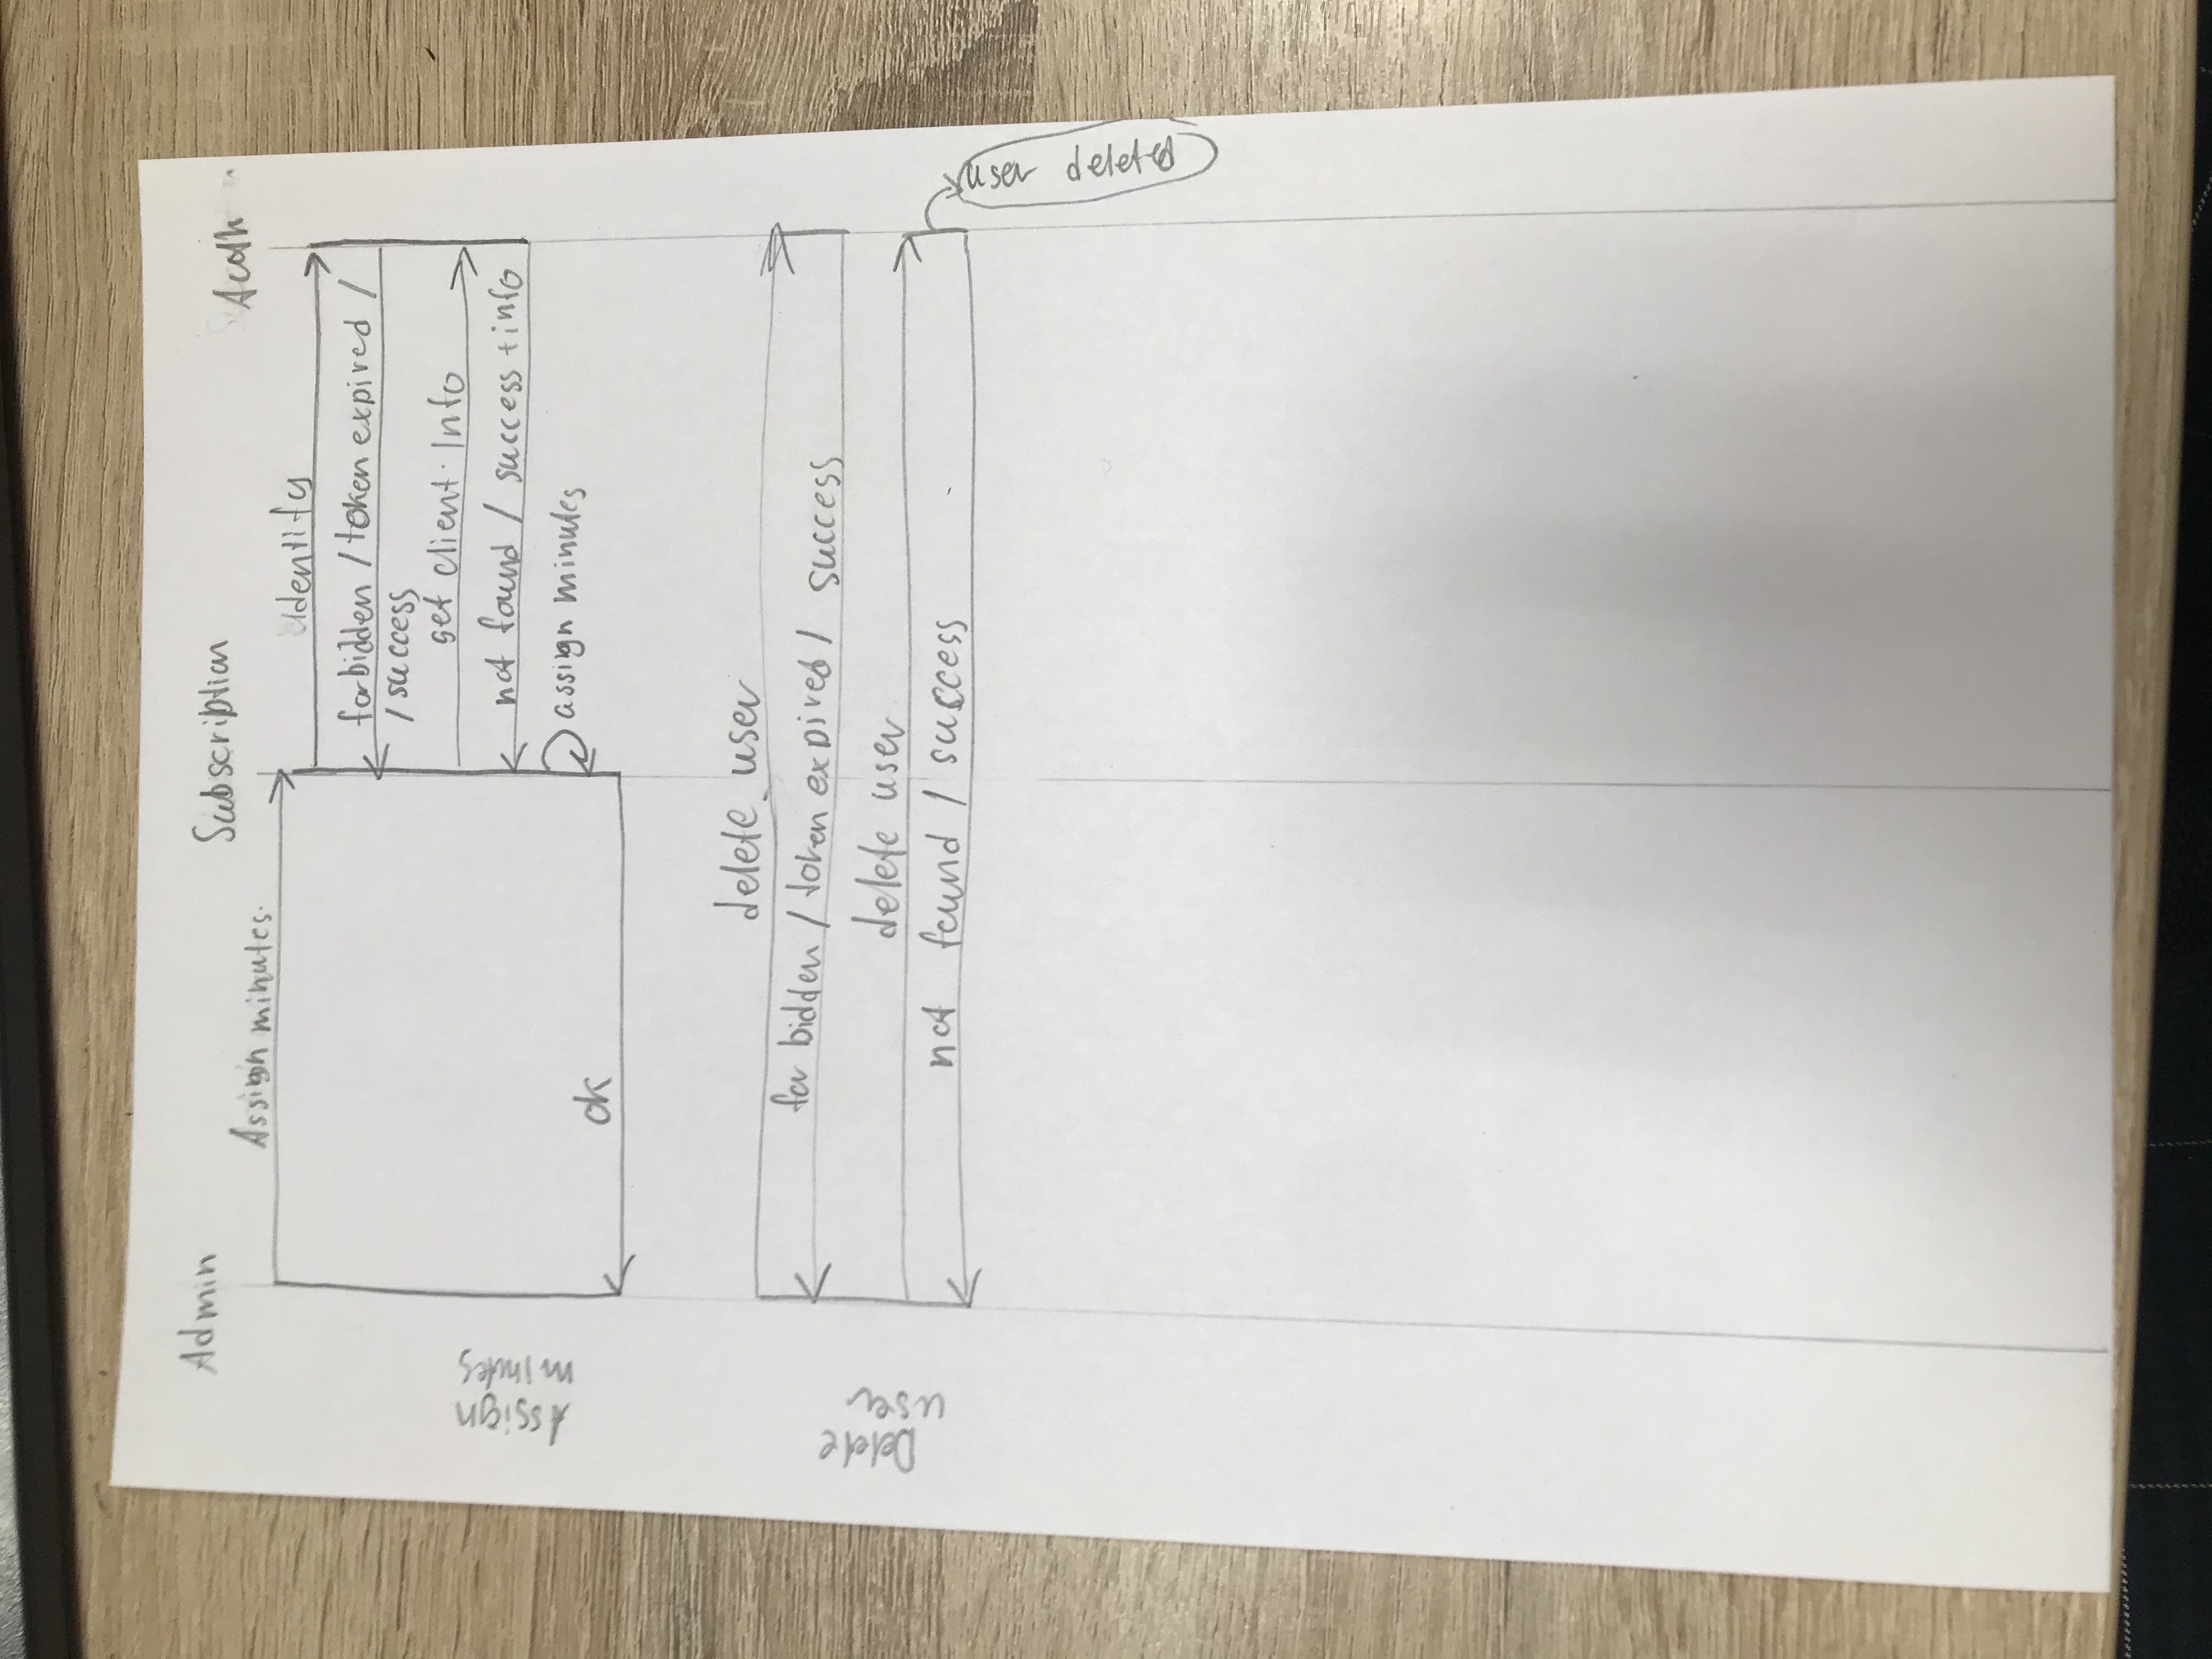 Admin
Subscription
Auth
Assign minutes
Identify
forbidden / token expired /
/ success
get client Info
not found / success + info
assign minutes
ok
Assign
minutes
delete user
forbidden / token expired / success
delete user
not found / success
Delete
user
user deleted